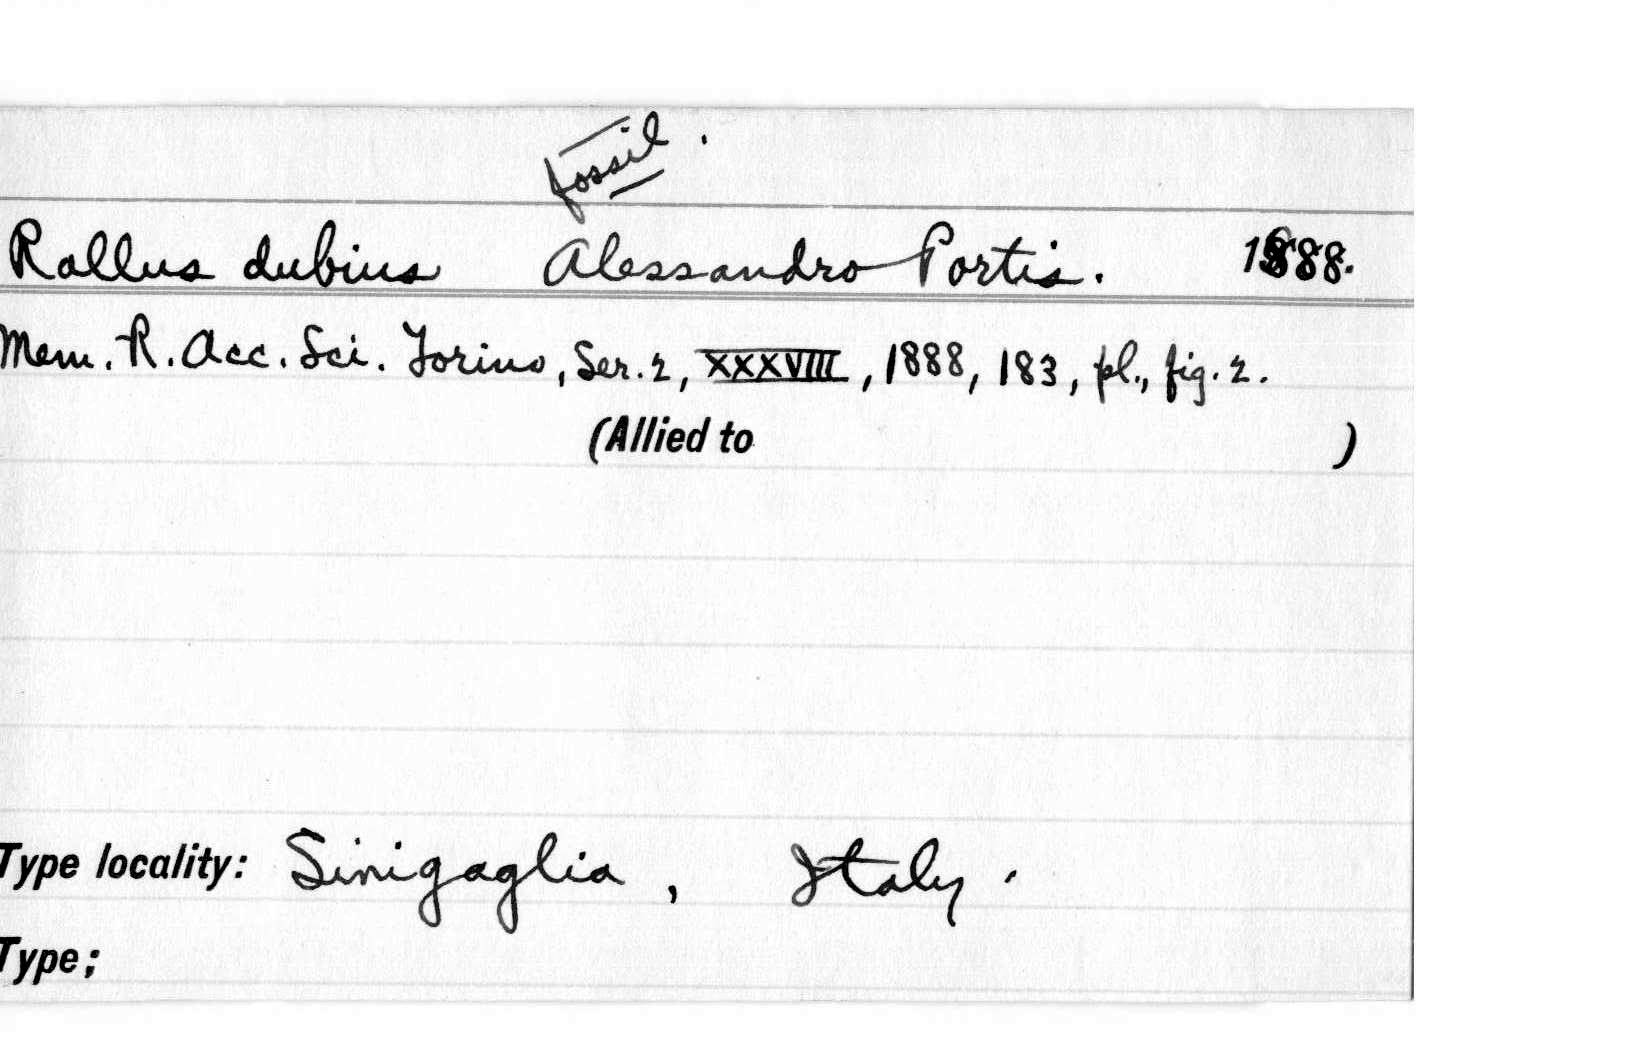 fossil.
Rallus dubius Alessandro Portis. 1888.
Mem. R. Acc. Sci. Torino, Ser. 2, XXXVIII, 1888, 183, pl., fig. 2.
(Allied to )
Type locality: Sinigaglia, Italy.
Type;